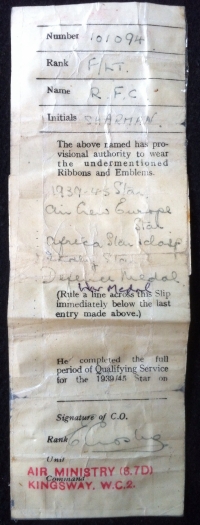 Number 101094
Rank F/LT.
Name R.F.C
Initials SHARMAN.
The above named has pro-
visional authority to wear
the undermentioned
Ribbons and Emblems.
1939-45 Star
Air Crew Europe
Star
Africa Star clasp
Star
Defence Medal
War Medal
(Rule a line across this Slip
immediately below the last
entry made above.)
He completed the full
period of Qualifying Service
for the 1939/45 Star on
Signature of C.O.
Rank
Unit
Command
AIR MINISTRY (S.7D)
KINGSWAY. W.C.2.